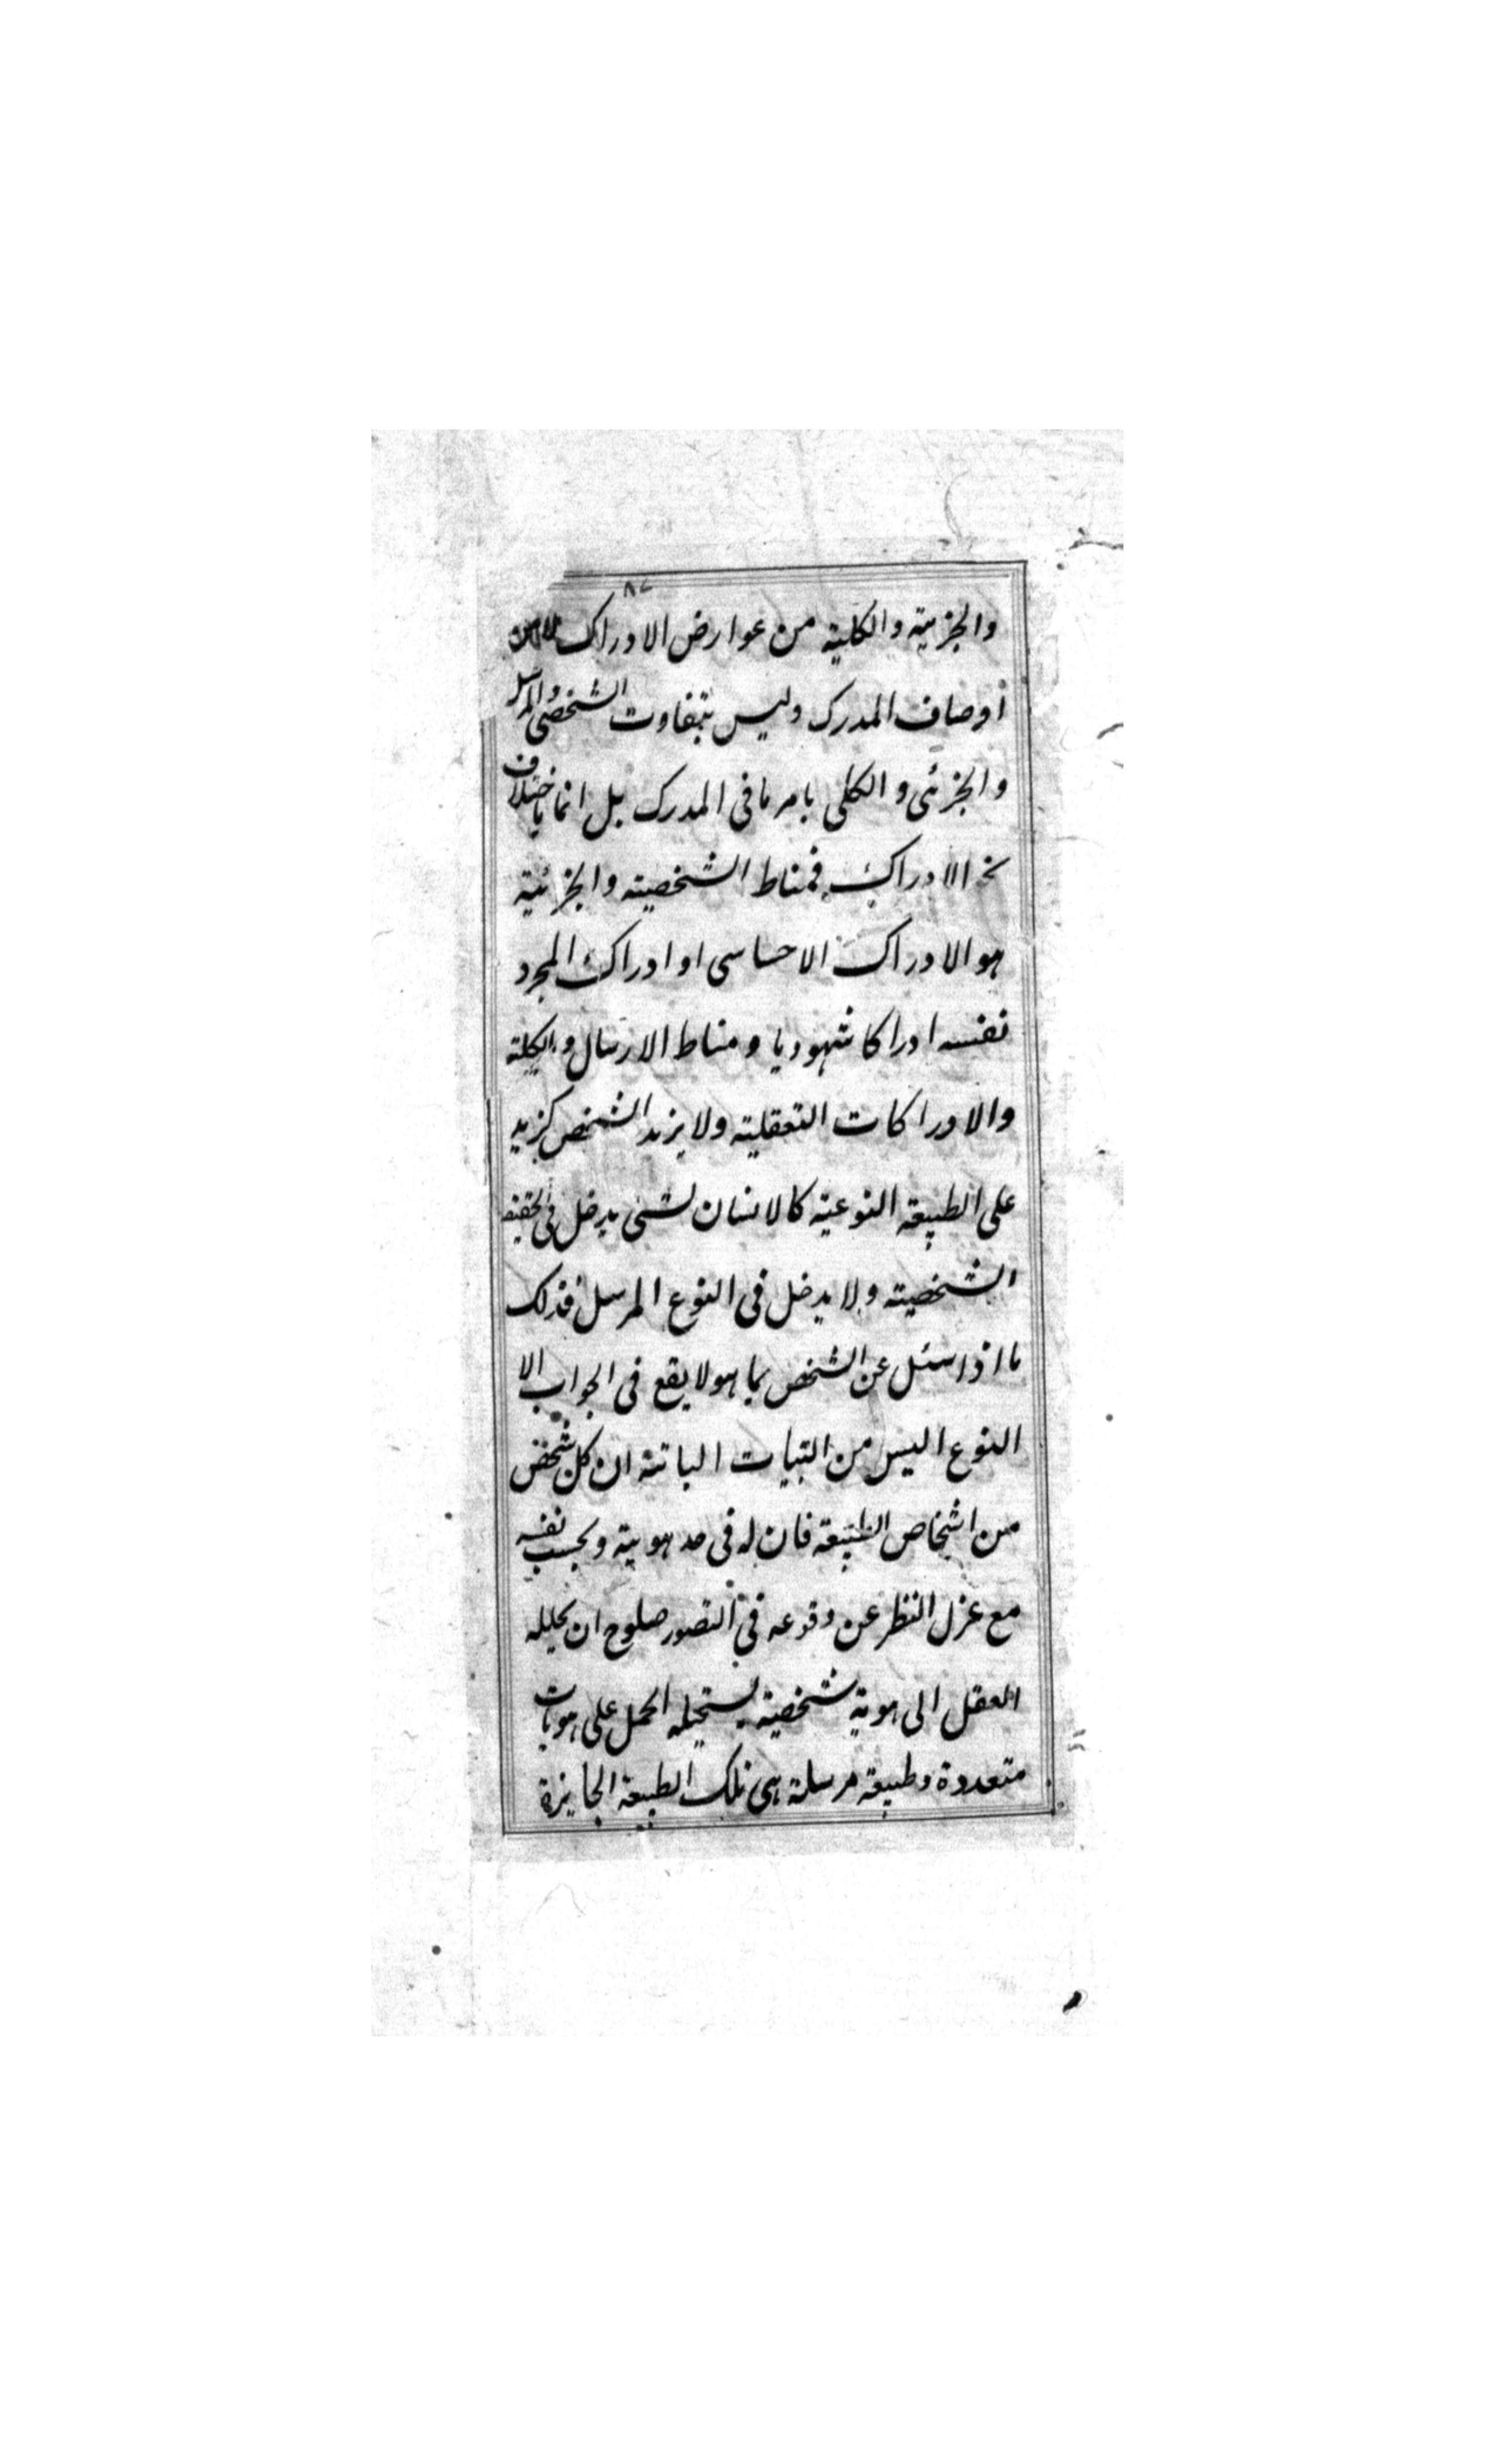 ٨٤
والجزئية والكلية من عوارض الادراك لا من
أوصاف المدرك وليس بتفاوت الشخصى والمرسل
والجزئى و الكلى بامر ما فى المدرك بل انما باختلاف
نحو الادراك فمناط الشخصية والجزئية
هو الادراك الاحساسى او ادراك المجرد
نفسه ادراكا شهوديا و مناط الارسال والكلية
والادراكات التعقلية ولا يزيد الشخص كزيد
على الطبيعة النوعية كالانسان لشئ يدخل فى الحقيقة
الشخصية ولا يدخل فى النوع المرسل فذلك
ما اذا سئل عن الشخص بما هو لا يقع فى الجواب الا
النوع اليس من البينات الباتة ان كل شخص
من اشخاص الطبيعة فان له فى حد هوية وبحسب نفسه
مع عزل النظر عن وقوعه فى التصور صلوح ان يحلله
العقل الى هوية شخصية يستحيله الحمل على هويات
متعددة وطبيعة مرسلة هى تلك الطبيعة الجايزة